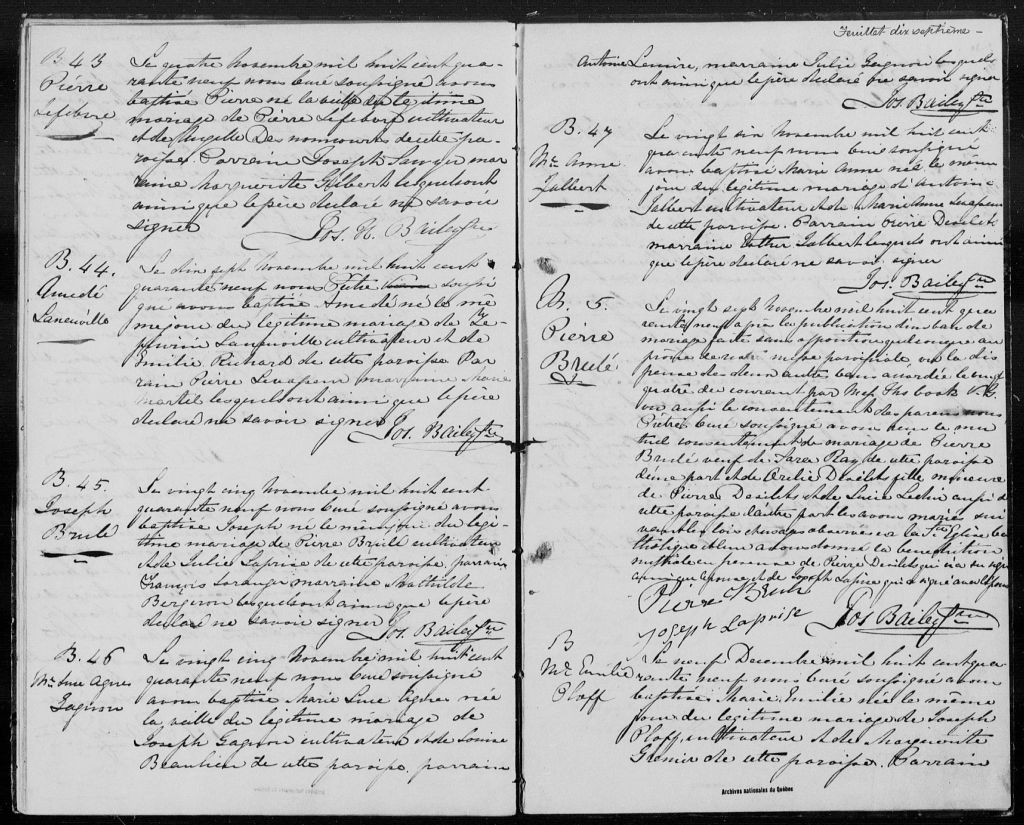 B. 43
Pierre
Lefebvre
Le quatre Novembre mil huit cent qua-
rante neuf nous Curé soussigné avons
baptisé Pierre né la veille du légitime
mariage de Pierre Lefebvre cultivateur
et de Angelle Desnoncourts de cette pa-
roisse. Parrain Joseph mar
raine Marguerite Gilbert lesquels ont
ainsi que le père déclaré ne savoir
signer
Jos. H. Bailey Ptre
B. 44.
Amedé
Laneuville
Le dix sept Novembre mil huit cent
quarante neuf nous Prêtre soussi
gné avons baptisé Amedé né le mê
me jour du légitime mariage de Ze-
phirin Laneuville cultivateur et de
Emilie Richard de cette paroisse Par
rain Pierre Levasseur marraine Marie
Martel lesquels ont ainsi que le père
déclaré ne savoir signer
Jos. Bailey Ptre
B. 45.
Joseph
Brulé
Le vingt cinq Novembre mil huit cent
quarante neuf nous Curé soussigné avons
baptisé Joseph né le même jour du légi-
time mariage de Pierre Brulé cultivateur
et de Julie Laprise de cette paroisse, parrain
François Loranger marraine Mathilde
Bergeron lesquels ont ainsi que le père
déclaré ne savoir signer
Jos. Bailey Ptre
B. 46
Mie Luce Agnes
Gagnon
Le vingt cinq Novembre mil huit cent
quarante neuf nous Curé soussigné
avons baptisé Marie Luce Agnes née
la veille du légitime mariage de
Joseph Gagnon cultivateur et de Louise
Beaulieu de cette paroisse, parrain
Feuillet dix septième -
Antoine Lemire, marraine Julie Gagnon lesquels
ont ainsi que le père déclaré ne savoir signer
Jos. Bailey Ptre
B. 47
Mie Anne
Jalbert
Le vingt six Novembre mil huit cent
quarante neuf nous Curé soussigné
avons baptisé Marie Anne née le même
jour du légitime mariage d'Antoine
Jalbert cultivateur et de Marie Anne Levasseur
de cette paroisse. Parrain Pierre Desilets
marraine Esther Jalbert lesquels ont ainsi
que le père déclaré ne savoir signer
Jos. Bailey Ptre
M. 5.
Pierre
Brulé
Le vingt sept Novembre mil huit cent qua
rante neuf après la publication d'un ban de
mariage faite sans opposition quelconque au
prône de notre messe paroissiale vu la dis
pense des deux autres bans accordée le vingt
quatre du courant par Mess Ths Cooke V.G.
vu aussi le consentement des parens nous
Prêtre Curé soussigné avons reçu le mu
tuel consentement de mariage de Pierre
Brulé veuf de Sara Ray de cette paroisse
d'une part et de Orélie Desilets fille mineure
de Pierre Desilets et de Luce aussi de
cette paroisse d'autre part les avons mariés sui
vant les lois et usages observés en la Ste Eglise Ca
tholique et leur avons donné la bénédiction
nuptiale en présence de Pierre Desilets qui n'a su signer
ainsi que l'épouse et de Joseph Laprise qui a signé avec l'époux
Pierre Brule
Joseph Laprise
Jos Bailey Ptre
B
Me Emilie
Ploff
Le neuf Decembre mil huit cent qua
rante neuf nous Curé soussigné avons
baptisé Marie Emilie née le même
jour du légitime mariage de Joseph
Ploff, cultivateur et de Marguerite
Grenier de cette paroisse. Parrain
Archives nationales du Québec